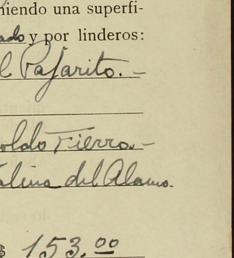 niendo una superfi-
ado y por linderos:
l Pajarito. -
oldo Fierro. -
alina del Alamo.
$ 153.00